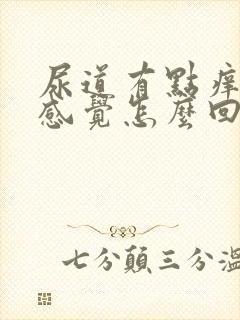 尿道有點癢
感覺怎麼回
七分顛三分溫